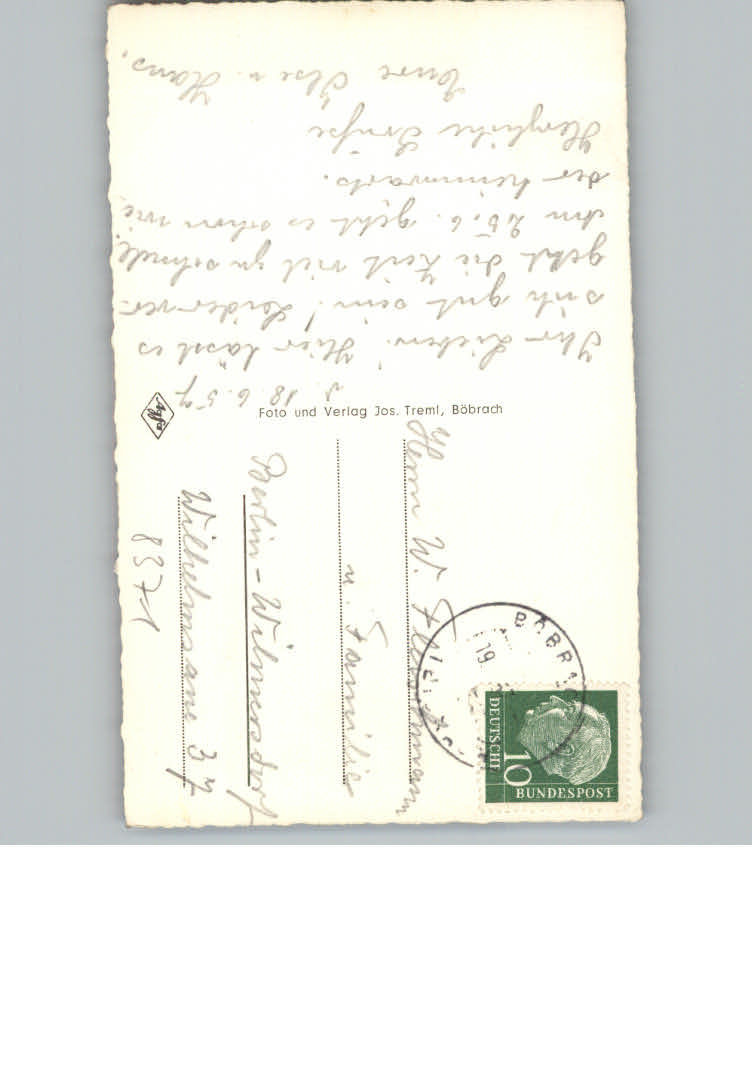 J. 18.6.57
Ihr Lieben! Hier lässt es
sich gut sein! Leider ver-
geht die Zeit viel zu schnell.
Am 25.6. geht es schon wie
der heimwärts.
Herzliche Grüße
Eure Ilse u. Hans.
Agfa
Foto und Verlag Jos. Treml, Böbrach
Herrn W.
u. Familie
Berlin-Wilmersdorf
Wilhelmsaue 37
8371
BÖBRACH
19
10
DEUTSCHE
BUNDESPOST